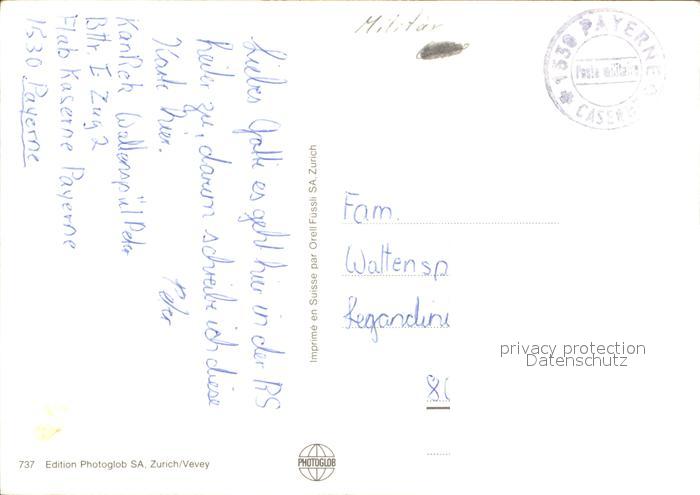 Militär
1530 PAYERNE
Poste militaire
CASERNE
Lieber Götti es geht hier in der RS
heiter zu, darum schreibe ich diese
Karte hier.
Peter
Kan Rek Waltenspül Peter
Bttr. I Zug 2
Flab Kaserne Payerne
1530 Payerne
Imprimé en Suisse par Orell Füssli SA, Zurich
Fam.
Waltensp
privacy protection
Datenschutz
737 Edition Photoglob SA, Zurich/Vevey
PHOTOGLOB